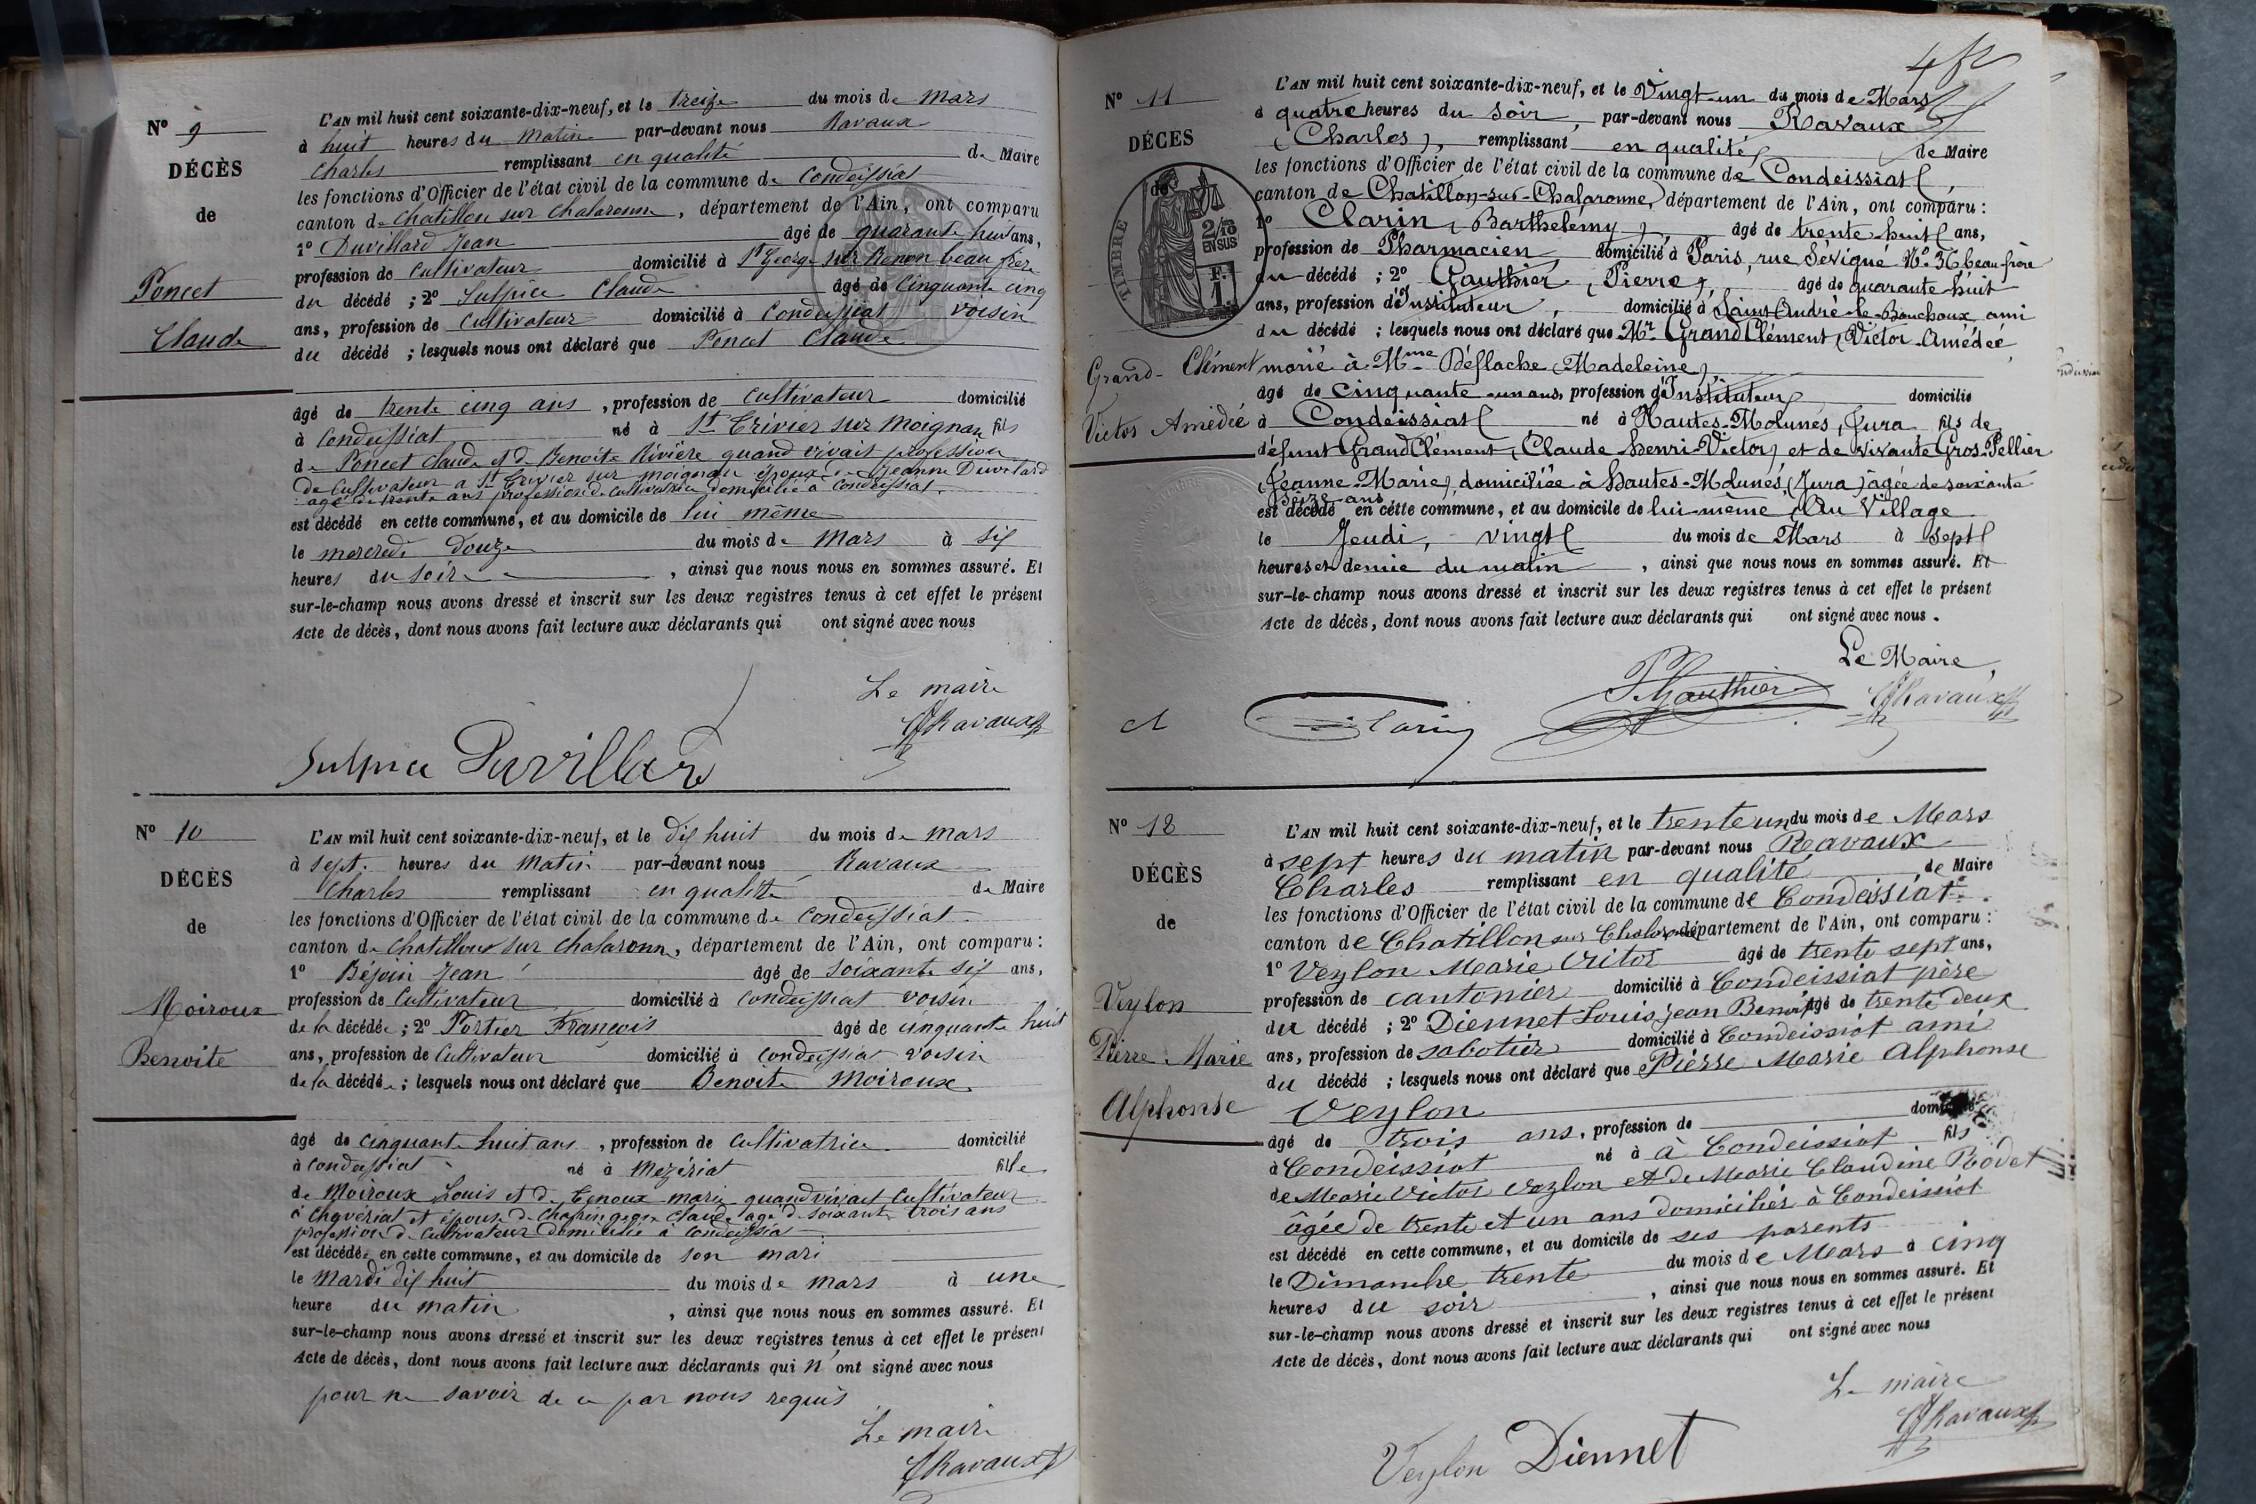 N° 9
DÉCÈS
de
Poncet
Claude
L'AN mil huit cent soixante-dix-neuf, et le treize du mois de mars
à huit heures du matin par-devant nous Ravaux
Charles remplissant en qualité de Maire
les fonctions d'Officier de l'état civil de la commune de Condeissiat
canton de Chatillon sur Chalaronne, département de l'Ain, ont comparu
1° Duvillard Jean âgé de quarante huit ans,
profession de Cultivateur domicilié à St George sur Renon beau frère
du décédé ; 2° Sulpice Claude âgé de Cinquante cinq
ans, profession de Cultivateur domicilié à Condeissiat voisin
du décédé ; lesquels nous ont déclaré que Poncet Claude
âgé de trente cinq ans, profession de Cultivateur domicilié
à Condeissiat né à St Trivier sur Moignan fils
de Poncet Claude et d Benoite Rivière quand vivait profession
de Cultivateur a St Trivier sur moignan époux de Jeanne Duvilard
agé de trente ans profession de Cultivatrice domicilié à Condeissiat.
est décédé en cette commune, et au domicile de lui même
le mercredi douze du mois de Mars à six
heures du soir, ainsi que nous nous en sommes assuré. Et
sur-le-champ nous avons dressé et inscrit sur les deux registres tenus à cet effet le présent
Acte de décès, dont nous avons fait lecture aux déclarants qui ont signé avec nous
Le maire
Ravaux
Sulpice Duvillard
N° 10
DÉCÈS
de
Moiroux
Benoite
L'AN mil huit cent soixante-dix-neuf, et le dix huit du mois de mars
à sept heures du Matin par-devant nous Ravaux
Charles remplissant en qualité de Maire
les fonctions d'Officier de l'état civil de la commune de Condeissiat
canton de Chatillon sur Chalaronn, département de l'Ain, ont comparu :
1° Béjoin Jean âgé de soixante six ans,
profession de Cultivateur domicilié à Condeissiat voisin
de la décédée ; 2° Portier François âgé de cinquante huit
ans, profession de Cultivateur domicilié à Condeissiat voisin
de la décédée ; lesquels nous ont déclaré que Benoite Moiroux
âgé de Cinquante huit ans, profession de Cultivatrice domicilié
à Condeissiat né à Mezériat fille
de Moiroux Louis et d marie quand vivait Cultivateur
à Chavériat et épouse de Claude agé d soixante trois ans
profession d Cultivateur domicilié à Condeissia
est décédée en cette commune, et au domicile de son mari
le Mardi dix huit du mois de mars à une
heure du matin, ainsi que nous nous en sommes assuré. Et
sur-le-champ nous avons dressé et inscrit sur les deux registres tenus à cet effet le présent
Acte de décès, dont nous avons fait lecture aux déclarants qui n'ont signé avec nous
pour ne savoir de ce par nous requis
Le maire
Ravaux
N° 11
DÉCÈS
de
TIMBRE
2/10 EN SUS
F. 1
Grand-Clément
Victor Amédée
L'AN mil huit cent soixante-dix-neuf, et le Vingt-un du mois de Mars
à quatre heures du Soir par-devant nous Ravaux
(Charles), remplissant en qualité de Maire
les fonctions d'Officier de l'état civil de la commune de Condeissiat,
canton de Chatillon-sur-Chalaronne, département de l'Ain, ont comparu :
1° Clarin, Barthélemy, âgé de trente huit ans,
profession de Pharmacien, domicilié à Paris, rue Sévigué N° 36 beau frère
du décédé ; 2° Gauthier, Pierre, âgé de quarante-huit
ans, profession d'Instituteur, domicilié à Saint André-le-Bouchoux, ami
du décédé ; lesquels nous ont déclaré que Mr. Grand Clément, Victor-Amédée,
marié à Mme Déflache, Madeleine,
âgé de cinquante-un ans, profession d'Instituteur, domicilié
à Condeissiat né à Hautes-Molunés, Jura fils de
défunt Grand Clément, Claude Henri-Victor, et de vivante Gros-Pellier
(Jeanne-Marie), domiciliée à Hautes-Molunés, (Jura) âgée de soixante
seize-ans
est décédé en cette commune, et au domicile de lui-même, Au Village
le Jeudi, vingt du mois de Mars à sept
heures et demie du matin, ainsi que nous nous en sommes assuré. Et
sur-le-champ nous avons dressé et inscrit sur les deux registres tenus à cet effet le présent
Acte de décès, dont nous avons fait lecture aux déclarants qui ont signé avec nous.
Le Maire,
Clarin P. Gauthier Ravaux
N° 12
DÉCÈS
de
Veylon
Pierre Marie
Alphonse
L'AN mil huit cent soixante-dix-neuf, et le trente un du mois de Mars
à sept heures du matin par-devant nous Ravaux
Charles remplissant en qualité de Maire
les fonctions d'Officier de l'état civil de la commune de Condeissiat
canton de Chatillon sur Chalaronne département de l'Ain, ont comparu :
1° Veylon Marie Victor âgé de trente sept ans,
profession de cantonier domicilié à Condeissiat père
du décédé ; 2° Diennet Louis Jean Benoit âgé de trente deux
ans, profession de sabotier domicilié à Condeissiat ami
du décédé ; lesquels nous ont déclaré que Pierre Marie Alphonse
Veylon domicilié
âgé de trois ans, profession de
à Condeissiat né à à Condeissiat fils
de Marie Victor Veylon et de Marie Claudine Rodet
âgée de trente et un ans domiciliés à Condeissiat
est décédé en cette commune, et au domicile de ses parents
le Dimanche trente du mois de Mars à cinq
heures du soir, ainsi que nous nous en sommes assuré. Et
sur-le-champ nous avons dressé et inscrit sur les deux registres tenus à cet effet le présent
Acte de décès, dont nous avons fait lecture aux déclarants qui ont signé avec nous
Le maire
Ravaux
Veylon Diennet